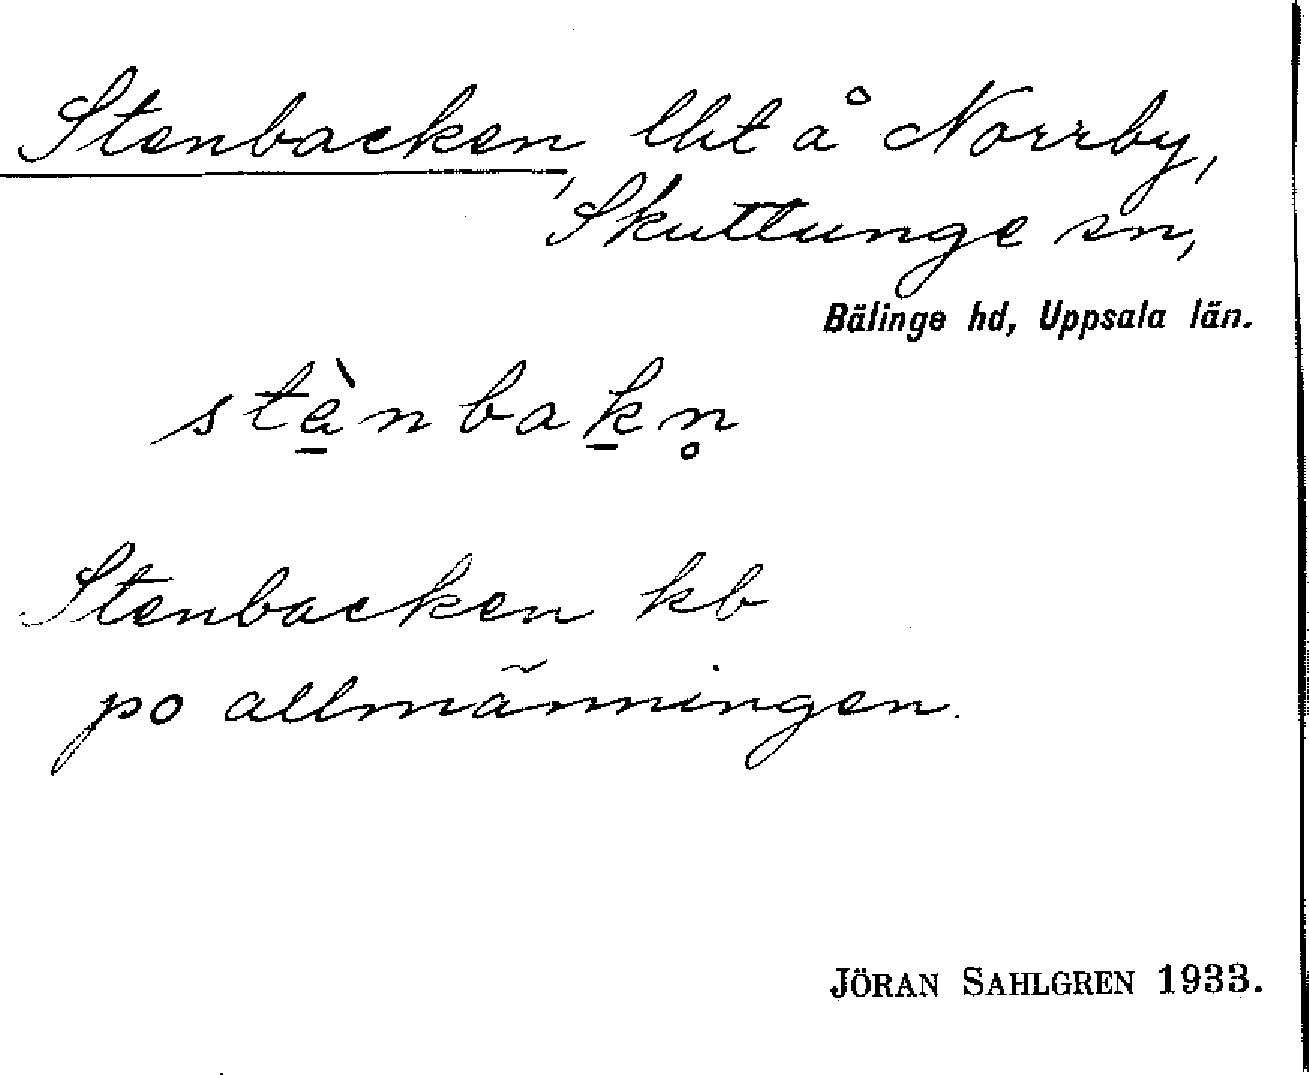 Stenbacken, lht å Norrby,
Skuttunge sn,
Bälinge hd, Uppsala län.
stè̠nbak̠n̥
Stenbacken kb
po allmänningen.
JÖRAN SAHLGREN 1933.